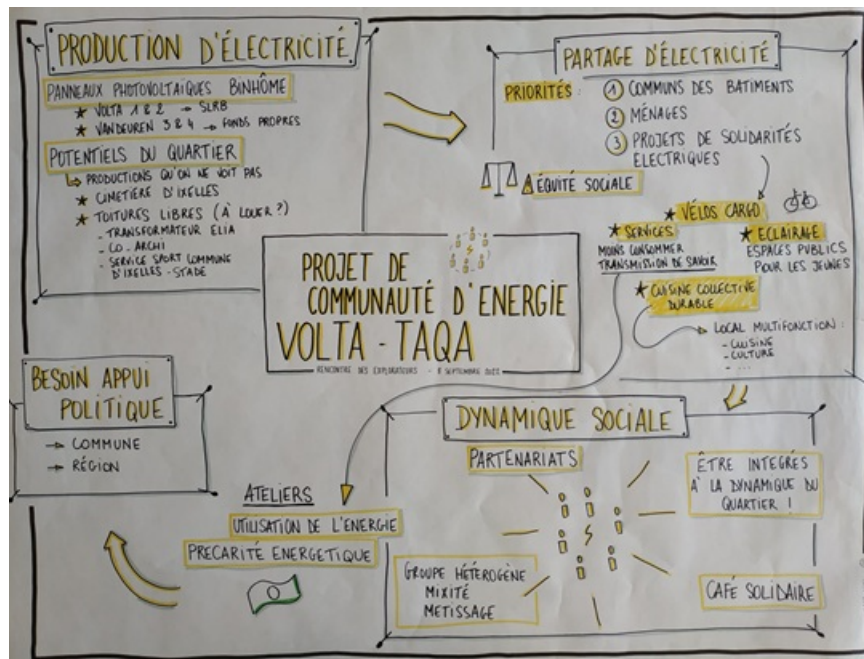 PRODUCTION D'ÉLECTRICITÉ
PANNEAUX PHOTOVOLTAÏQUES BINHÔME
★ VOLTA 1 & 2 → SLRB
★ VANDEUREN 3 & 4 → FONDS PROPRES
POTENTIELS DU QUARTIER
↳ PRODUCTIONS QU'ON NE VOIT PAS
★ CIMETIÈRE D'IXELLES
★ TOITURES LIBRES (À LOUER ?)
- TRANSFORMATEUR ELIA
- CO-ARCHI
- SERVICE SPORT COMMUNE
D'IXELLES - STADE
PARTAGE D'ÉLECTRICITÉ
PRIORITÉS : ① COMMUNS DES BATIMENTS
② MÉNAGES
③ PROJETS DE SOLIDARITÉS
ELECTRIQUES
ÉQUITÉ SOCIALE
★ VÉLOS CARGO
★ SERVICES
MOINS CONSOMMER
TRANSMISSION DE SAVOIR
★ ECLAIRAGE
ESPACES PUBLICS
POUR LES JEUNES
★ CUISINE COLLECTIVE
DURABLE
→ LOCAL MULTIFONCTION :
- CUISINE
- CULTURE
- ...
PROJET DE
COMMUNAUTÉ D'ENERGIE
VOLTA - TAQA
RENCONTRE DES EXPLORATEURS - 8 SEPTEMBRE 2022
BESOIN APPUI
POLITIQUE
→ COMMUNE
→ RÉGION
DYNAMIQUE SOCIALE
PARTENARIATS
ÊTRE INTEGRÉS
À LA DYNAMIQUE DU
QUARTIER !
GROUPE HÉTÉROGÈNE
MIXITÉ
METISSAGE
CAFÉ SOLIDAIRE
ATELIERS
UTILISATION DE L'ENERGIE
PRECARITÉ ENERGETIQUE